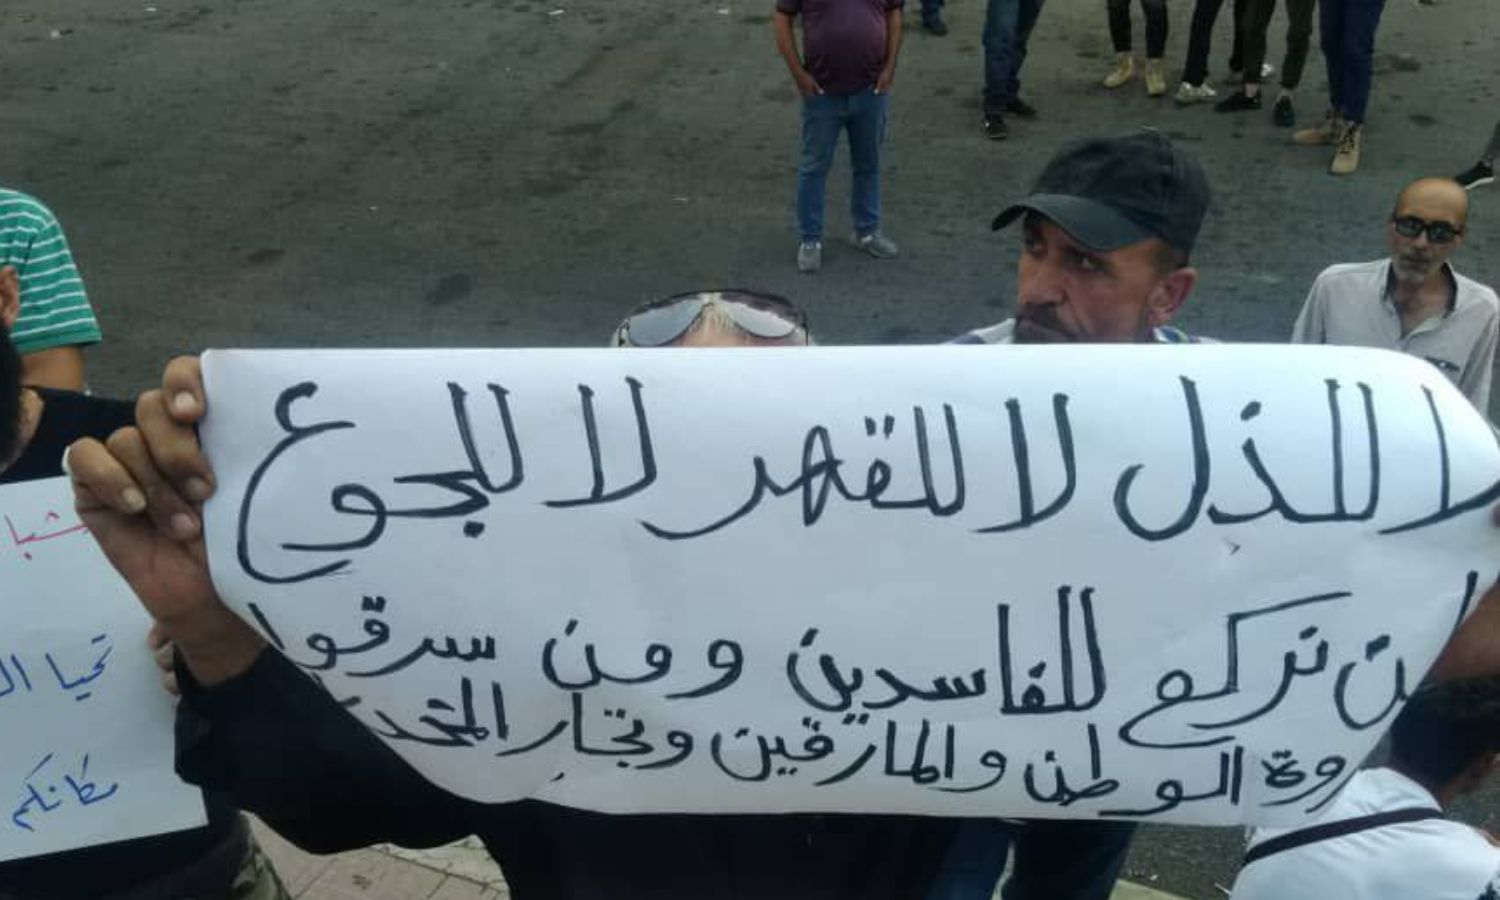 لا للذل لا للقهر لا للجوع
لن نركع للفاسدين ومن سرقوا
ثروة الوطن والمارقين وتجار المخدرات
شبا
تحيا ال
مكانكم